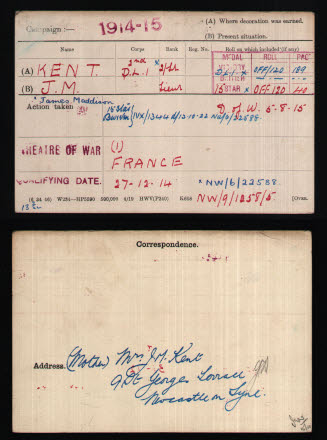 Campaign :— 1914-15
(A) Where decoration was earned.
(B) Present situation.
Name Corps Rank Reg. No. Roll on which included (if any)
MEDAL ROLL PAGE
(A) KENT. 2nd D.L.I 2/Lt VICTORY D.L.I OFF/120 189
(B) J.M. Lieut BRITISH
* James Maddison 15 STAR OFF 120 40
Action taken 15 Star D. of W. 5-8-15
THEATRE OF WAR (1)
FRANCE
QUALIFYING DATE. 27-12-14 * NW/6/22588.
(6 34 46) W234—HP5590 500,000 4/19 HWV(P240) K608 NW/9/12581/5 [Over.
Correspondence.
Address. (Mother) Mrs J.M. Kent
9 St Georges Terrace
Newcastle on Tyne.